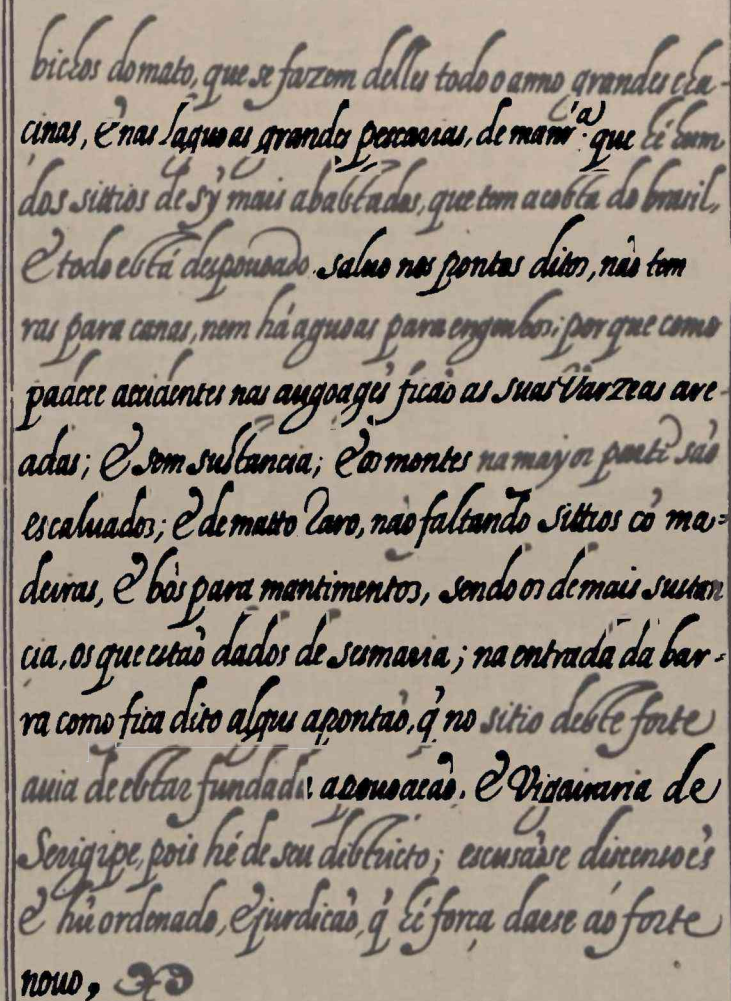 bichos do mato, que se fazem delles todo o anno grandes cha-
cinas, & nas laguoas grandes pescarias, de manr.ª que hé hum
dos sittios de sy mais abastados, que tem a costa do brasil,
& todo está despouoado saluo nos pontos ditos, não tem
ras para canas, nem há aguoas para engenhos; por que como
padece accidentes nas augoagẽs ficão as suas Varzeas are-
adas; & sem sustancia; & os montes na mayor parte são
escaluados; & de matto Raro, não faltando sittios cõ ma-
deiras, & bõs para mantimentos, sendo os de mais sustan
cia, os que estão dados de sesmaria; na entrada da bar-
ra como fica dito algũs apontão, q̃ no sitio deste forte
auia de estar fundada a pouoacão, & Vigairaria de
Serigipe, pois hé de seu districto; escusãose discensoẽs
& hũ ordenado, & jurdicão, q̃ hé força darse ao forte
nouo,